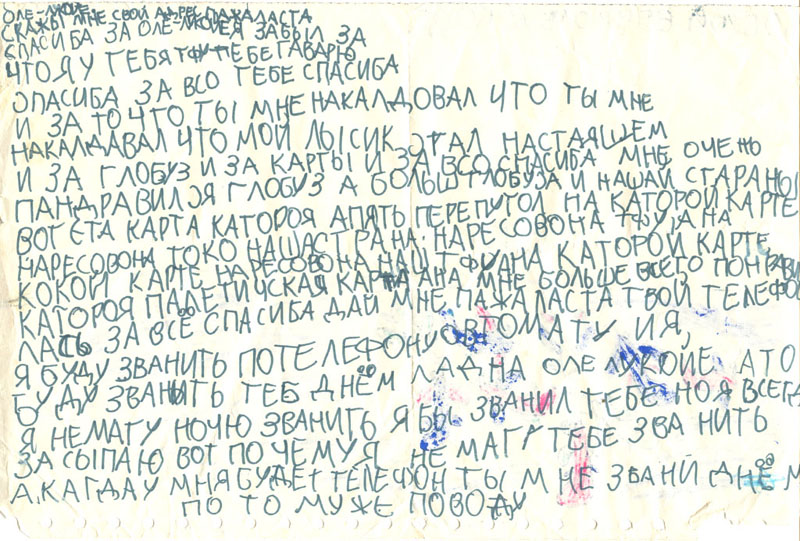 ОЛЕ-ЛЮКОЕ
СКАЖЫ МНЕ СВОЙ АДРЕС ПАЖАЛАСТА
СПАСИБА ЗА ОЛЕ-ЛЮКОЕ Я ЗАБЫЛ ЗА
ЧТО Я У ТЕБЯ ТФУ ТЕБЕ ГАВАРЮ
СПАСИБА ЗА ВСО ТЕБЕ СПАСИБА
И ЗА ТО ЧТО ТЫ МНЕ НАКАЛДОВАЛ ЧТО ТЫ МНЕ
НАКАЛДАВАЛ ЧТО МОЙ ЛЫСИК СТАЛ НАСТАЯЩЕМ
И ЗА ГЛОБУЗ И ЗА КАРТЫ И ЗА ВСО СПАСИБА МНЕ ОЧЕНЬ
ПАНДРАВИЛСЯ ГЛОБУЗ А БОЛЬШ ГЛОБУЗА И НАШАЙ СТАРАНЫ
ВОТ ЕТА КАРТА КАТОРОЯ АПЯТЬ ПЕРЕПУТОЛ НА КАТОРОЙ КАРТЕ
НАРЕСОВОНА ТОКО НАША СТРАНА НАРЕСОВОНА ТФУ НА
КОКОЙ КАРТЕ НАРЕСОВОНА НАШ ТФУ НА КАТОРОЙ КАРТЕ
КАТОРОЯ ПАЛЕТИЧСКАЯ КАРТА АНА МНЕ БОЛЬШЕ ВСЕГО ПОНРАВИ
ЛАСЬ ЗА ВСЁ СПАСИБА ДАЙ МНЕ ПАЖАЛАСТА ТВОЙ ТЕЛЕФОН
Я БУДУ ЗВАНИТЬ ПО ТЕЛЕФОНУ ОВТОМАТУ И Я,
БУДУ ЗВАНЫТЬ ТЕБ ДНЁМ ЛАДНА ОЛЕ ЛУКОЙЕ А ТО
Я НЕ МАГУ НОЧЮ ЗВАНИТЬ Я БЫ ЗВАНИЛ ТЕБЕ НО Я ВСЕГДА
ЗАСЫПАЮ ВОТ ПОЧЕМУ Я НЕ МАГУ ТЕБЕ ЗВАНИТЬ
А КАГДА У МНЯ БУДЕТ ТЕЛЕФОН ТЫ МНЕ ЗВАНИ ДНЁМ
ПО ТОМУ ЖЕ ПОВОДУ